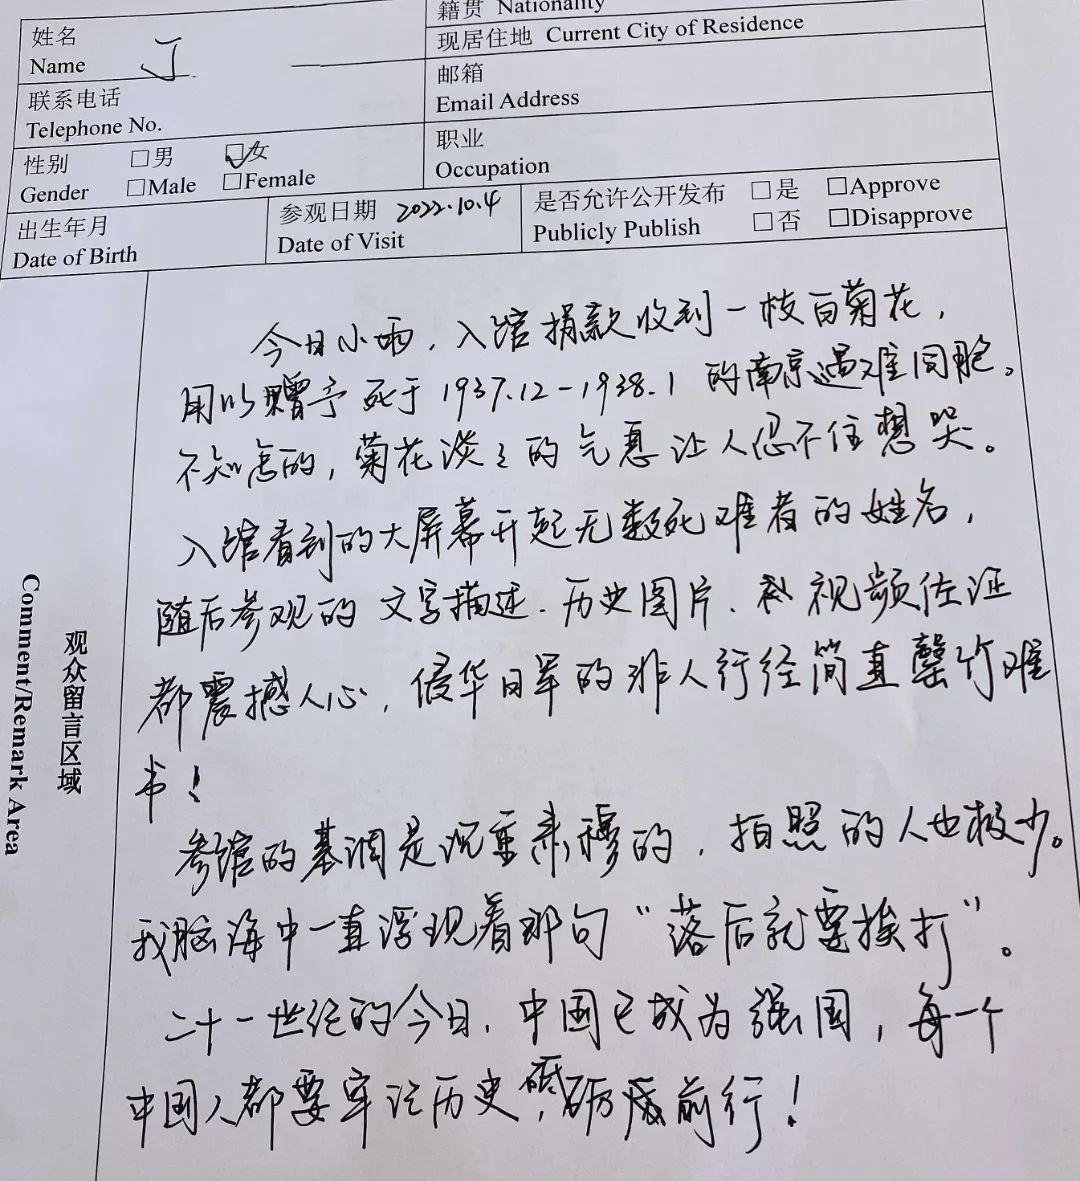 籍贯 Nationality
姓名
Name J
现居住地 Current City of Residence
联系电话
Telephone No.
邮箱
Email Address
性别 □男 ☑女
Gender □Male □Female
职业
Occupation
出生年月
Date of Birth
参观日期 2022.10.4
Date of Visit
是否允许公开发布 □是 □Approve
Publicly Publish □否 □Disapprove
观众留言区域
Comment/Remark Area
今日小雨,入馆捐款收到一枝白菊花,
用以赠予死于1937.12-1938.1的南京遇难同胞。
不知怎的,菊花淡々的气息让人忍不住想哭。
入馆看到的大屏幕开起无数死难者的姓名,
随后参观的文字描述、历史图片、视频佐证
都震撼人心,侵华日军的非人行经简直罄竹难
书!
参馆的基调是沉重肃穆的,拍照的人也极少。
我脑海中一直浮现着那句“落后就要挨打”。
二十一世纪的今日,中国已成为强国,每一个
中国人都要牢记历史,砥砺前行!